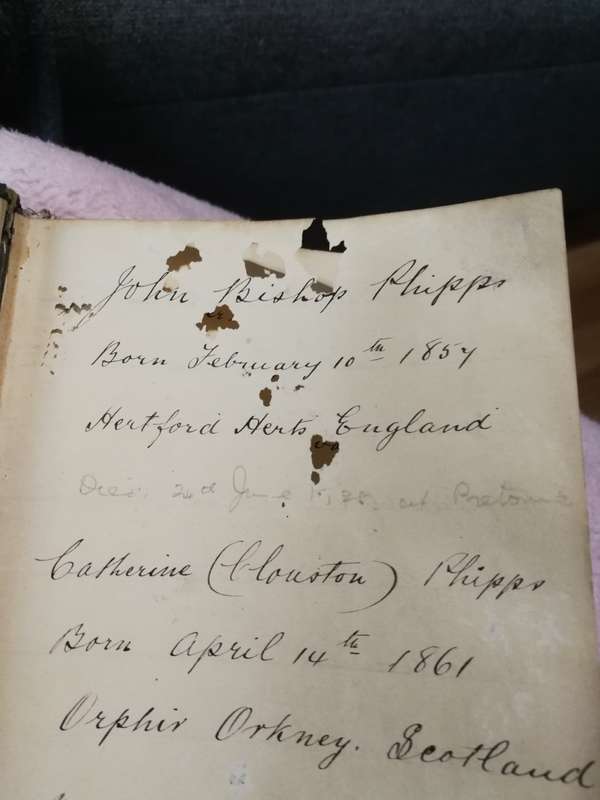 John Bishop Phipps
Born February 10th 1857
Hertford Herts England
Died 2nd June at Pretoria
Catherine (Clouston) Phipps
Born April 14th 1861
Orphir Orkney. Scotland